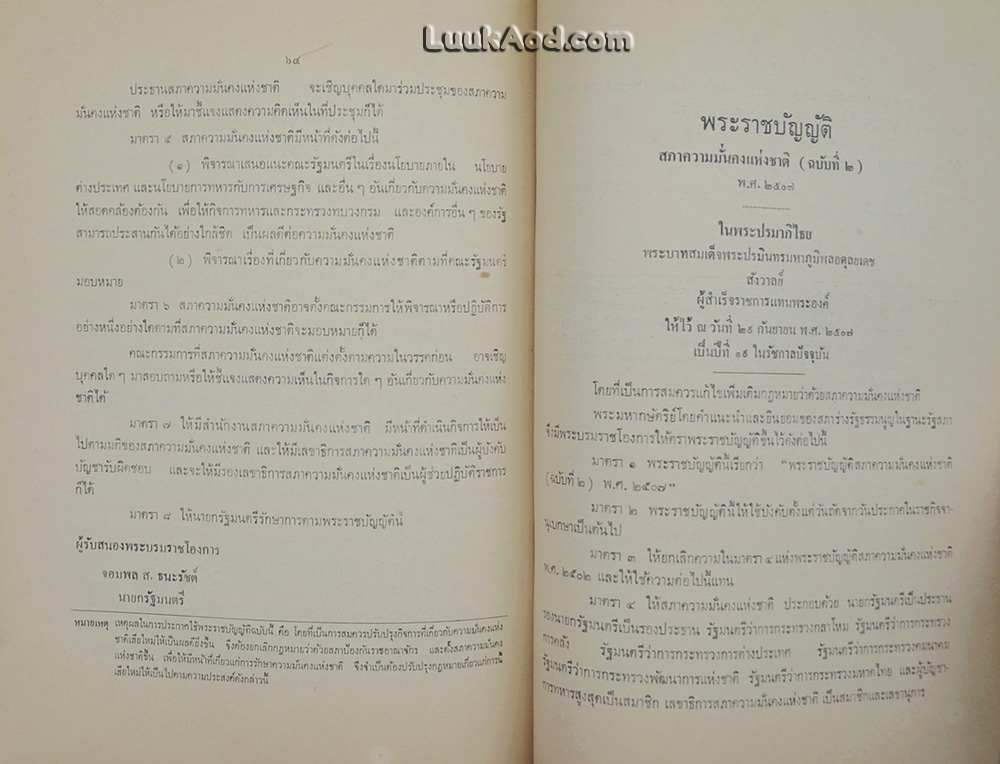 LuukAod.com
๖๔
ประธานสภาความมั่นคงแห่งชาติ จะเชิญบุคคลใดมาร่วมประชุมของสภาความ
มั่นคงแห่งชาติ หรือให้มาชี้แจงแสดงความคิดเห็นในที่ประชุมก็ได้
มาตรา ๕ สภาความมั่นคงแห่งชาติมีหน้าที่ดังต่อไปนี้
(๑) พิจารณาเสนอแนะคณะรัฐมนตรีในเรื่องนโยบายภายใน นโยบาย
ต่างประเทศ และนโยบายการทหารกับการเศรษฐกิจ และอื่น ๆ อันเกี่ยวกับความมั่นคงแห่งชาติ
ให้สอดคล้องต้องกัน เพื่อให้กิจการทหารและกระทรวงทบวงกรม และองค์การอื่น ๆ ของรัฐ
สามารถประสานกันได้อย่างใกล้ชิด เป็นผลดีต่อความมั่นคงแห่งชาติ
(๒) พิจารณาเรื่องที่เกี่ยวกับความมั่นคงแห่งชาติตามที่คณะรัฐมนตรี
มอบหมาย
มาตรา ๖ สภาความมั่นคงแห่งชาติอาจตั้งคณะกรรมการให้พิจารณาหรือปฏิบัติการ
อย่างหนึ่งอย่างใดตามที่สภาความมั่นคงแห่งชาติจะมอบหมายก็ได้
คณะกรรมการที่สภาความมั่นคงแห่งชาติแต่งตั้งตามความในวรรคก่อน อาจเชิญ
บุคคลใด ๆ มาสอบถามหรือให้ชี้แจงแสดงความเห็นในกิจการใด ๆ อันเกี่ยวกับความมั่นคงแห่ง
ชาติได้
มาตรา ๗ ให้มีสำนักงานสภาความมั่นคงแห่งชาติ มีหน้าที่ดำเนินกิจการให้เป็น
ไปตามมติของสภาความมั่นคงแห่งชาติ และให้มีเลขาธิการสภาความมั่นคงแห่งชาติเป็นผู้บังคับ
บัญชารับผิดชอบ และจะให้มีรองเลขาธิการสภาความมั่นคงแห่งชาติเป็นผู้ช่วยปฏิบัติราชการ
ก็ได้
มาตรา ๘ ให้นายกรัฐมนตรีรักษาการตามพระราชบัญญัตินี้
ผู้รับสนองพระบรมราชโองการ
จอมพล ส. ธนะรัชต์
นายกรัฐมนตรี
หมายเหตุ เหตุผลในการประกาศใช้พระราชบัญญัติฉบับนี้ คือ โดยที่เป็นการสมควรปรับปรุงกิจการที่เกี่ยวกับความมั่นคงแห่ง
ชาติเสียใหม่ให้เป็นผลดียิ่งขึ้น จึงต้องยกเลิกกฎหมายว่าด้วยสภาป้องกันราชอาณาจักร และตั้งสภาความมั่นคง
แห่งชาติขึ้น เพื่อให้มีหน้าที่เกี่ยวแก่การรักษาความมั่นคงแห่งชาติ จึงจำเป็นต้องปรับปรุงกฎหมายเกี่ยวแก่การนี้
เสียใหม่ให้เป็นไปตามความประสงค์ดังกล่าวนี้
พระราชบัญญัติ
สภาความมั่นคงแห่งชาติ (ฉบับที่ ๒)
พ.ศ. ๒๕๐๗
ในพระปรมาภิไธย
พระบาทสมเด็จพระปรมินทรมหาภูมิพลอดุลยเดช
สังวาลย์
ผู้สำเร็จราชการแทนพระองค์
ให้ไว้ ณ วันที่ ๒๙ กันยายน พ.ศ. ๒๕๐๗
เป็นปีที่ ๑๙ ในรัชกาลปัจจุบัน
โดยที่เป็นการสมควรแก้ไขเพิ่มเติมกฎหมายว่าด้วยสภาความมั่นคงแห่งชาติ
พระมหากษัตริย์โดยคำแนะนำและยินยอมของสภาร่างรัฐธรรมนูญในฐานะรัฐสภา
จึงมีพระบรมราชโองการให้ตราพระราชบัญญัติขึ้นไว้ดังต่อไปนี้
มาตรา ๑ พระราชบัญญัตินี้เรียกว่า “พระราชบัญญัติสภาความมั่นคงแห่งชาติ
(ฉบับที่ ๒) พ.ศ. ๒๕๐๗”
มาตรา ๒ พระราชบัญญัตินี้ให้ใช้บังคับตั้งแต่วันถัดจากวันประกาศในราชกิจจา-
นุเบกษาเป็นต้นไป
มาตรา ๓ ให้ยกเลิกความในมาตรา ๔ แห่งพระราชบัญญัติสภาความมั่นคงแห่งชาติ
พ.ศ. ๒๕๐๒ และให้ใช้ความต่อไปนี้แทน
มาตรา ๔ ให้สภาความมั่นคงแห่งชาติ ประกอบด้วย นายกรัฐมนตรีเป็นประธาน
รองนายกรัฐมนตรีเป็นรองประธาน รัฐมนตรีว่าการกระทรวงกลาโหม รัฐมนตรีว่าการกระทรวง
การคลัง รัฐมนตรีว่าการกระทรวงการต่างประเทศ รัฐมนตรีว่าการกระทรวงคมนาคม
รัฐมนตรีว่าการกระทรวงพัฒนาการแห่งชาติ รัฐมนตรีว่าการกระทรวงมหาดไทย และผู้บัญชา-
การทหารสูงสุดเป็นสมาชิก เลขาธิการสภาความมั่นคงแห่งชาติ เป็นสมาชิกและเลขานุการ